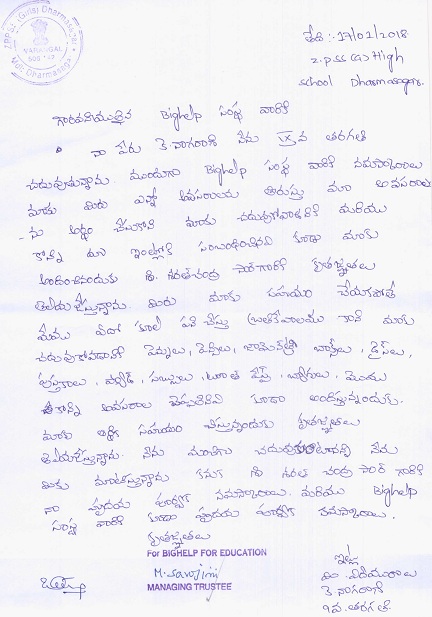 Z.P.S.S. (Girls) Dharmasagar
WARANGAL
Mdl: Dharmasagar
తేది :- 17/02/2018
Z.P.SS (G) High
School Dharmasagar
గౌరవనీయులైన Bighelp సంస్థ వారికి
నా పేరు కె.నాగరాణి నేను IX వ తరగతి
చదువుతున్నాను. ముందుగా Bighelp సంస్థ వారికి నమస్కారాలు
మాకు మీరు ఎన్నో అవసరాలను తీరుస్తు మా అవసరాల
ను అర్థం చేసుకొని మాకు చదువుకోవడానికి మరియు
కొన్ని మా ఇంట్లోకి సంబంధించినవి కూడా మాకు
అందించినందుకు శ్రీ. శరత్‌చంద్ర సార్ గారికి కృతజ్ఞతలు
తెలియజేస్తున్నాను. మీరు మాకు సహాయం చేయకపోతే
మేము ఏదో కూలి పని చేస్తు బ్రతికేవాలము కానీ మాకు
చదువుకోవడానికి పెన్నులు, పెన్సిల్, జామెట్రీ బాక్స్‌లు, డ్రెస్‌లు,
పుస్తకాలు, ప్యాడ్, సబ్బులు, టూత్ పేస్ట్, బ్యాగులు, మొదలు
కొన్ని అవసరాల వస్తువులను కూడా అందిస్తున్నందుకు.
మాకు ఆర్థిక సహాయం చేస్తున్నందుకు కృతజ్ఞతలు
తెలియజేస్తున్నాను. నేను మంచిగా చదువుకుంటానని నేను
మీకు మాటిస్తున్నాను కనుక శ్రీ శరత్ చంద్ర సార్ గారికి
నా హృదయ పూర్వక నమస్కారాలు. మరియు Bighelp
సంస్థ వారికి కూడా హృదయ పూర్వక నమస్కారాలు.
కృతజ్ఞతలు
For BIGHELP FOR EDUCATION
M. Sarojini
MANAGING TRUSTEE
ఇట్లు
మీ విధేయురాలు
కె నాగరాణి
9వ. తరగతి.